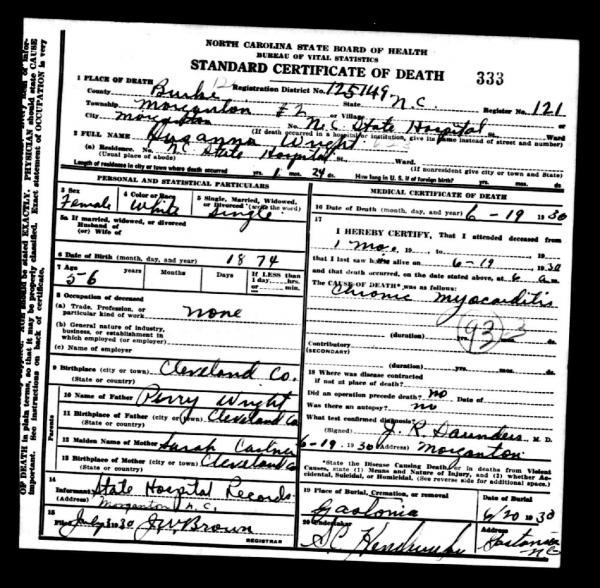 NORTH CAROLINA STATE BOARD OF HEALTH
BUREAU OF VITAL STATISTICS
STANDARD CERTIFICATE OF DEATH 333
1 PLACE OF DEATH
County Burke Registration District No. 125149 Register No. 121
Township Morganton #2 State N.C. or Village or
City Morganton No. N.C. State Hospital St. Ward
(If death occurred in a hospital or institution, give its name instead of street and number)
2 FULL NAME Susanna Wright
(a) Residence. No. NC State Hospital St. Ward.
(Usual place of abode) (If nonresident give city or town and State)
Length of residence in city or town where death occurred yrs. 1 mos. 24 ds. How long in U. S. if of foreign birth? yrs. mos. ds.
PERSONAL AND STATISTICAL PARTICULARS
3 Sex Female
4 Color or Race White
5 Single, Married, Widowed, or Divorced (write the word) Single
5a If married, widowed, or divorced
Husband of
(or) Wife of
6 Date of Birth (month, day, and year) 1874
7 Age 56 years Months Days If LESS than 1 day....hrs. or....min.
8 Occupation of deceased
(a) Trade, Profession, or particular kind of work none
(b) General nature of industry, business, or establishment in which employed (or employer)
(c) Name of employer
9 Birthplace (city or town) Cleveland Co.
(State or country)
Parents
10 Name of Father Perry Wright
11 Birthplace of Father (city or town) Cleveland Co
(State or country)
12 Maiden Name of Mother Sarah
13 Birthplace of Mother (city or town) Cleveland Co
(State or country)
14
Informant State Hospital Records
Morganton N.C.
15
Filed July 1 30 J.W. Brown
REGISTRAR
MEDICAL CERTIFICATE OF DEATH
16 Date of Death (month, day, and year) 6-19 1930
17
I HEREBY CERTIFY, That I attended deceased from
1 mo. 19 to 19
that I last saw h alive on 6-19 1930
and that death occurred, on the date stated above, at 6 a m.
The CAUSE OF DEATH* was as follows:
Chronic myocarditis
93
(duration) yrs. mos. ds.
Contributory
(SECONDARY)
(duration) yrs. mos. ds.
18 Where was disease contracted
if not at place of death?
Did an operation precede death? no Date of
Was there an autopsy? no
What test confirmed diagnosis?
(Signed) J. R. Saunders M. D.
6-19, 1930 (Address) Morganton
*State the Disease Causing Death, or in deaths from Violent
Causes, state (1) Means and Nature of Injury, and (2) whether Accidental, Suicidal, or Homicidal. (See reverse side for additional space.)
19 Place of Burial, Cremation, or removal Gastonia
Date of Burial 6/20 1930
20 Undertaker
Address Gastonia NC